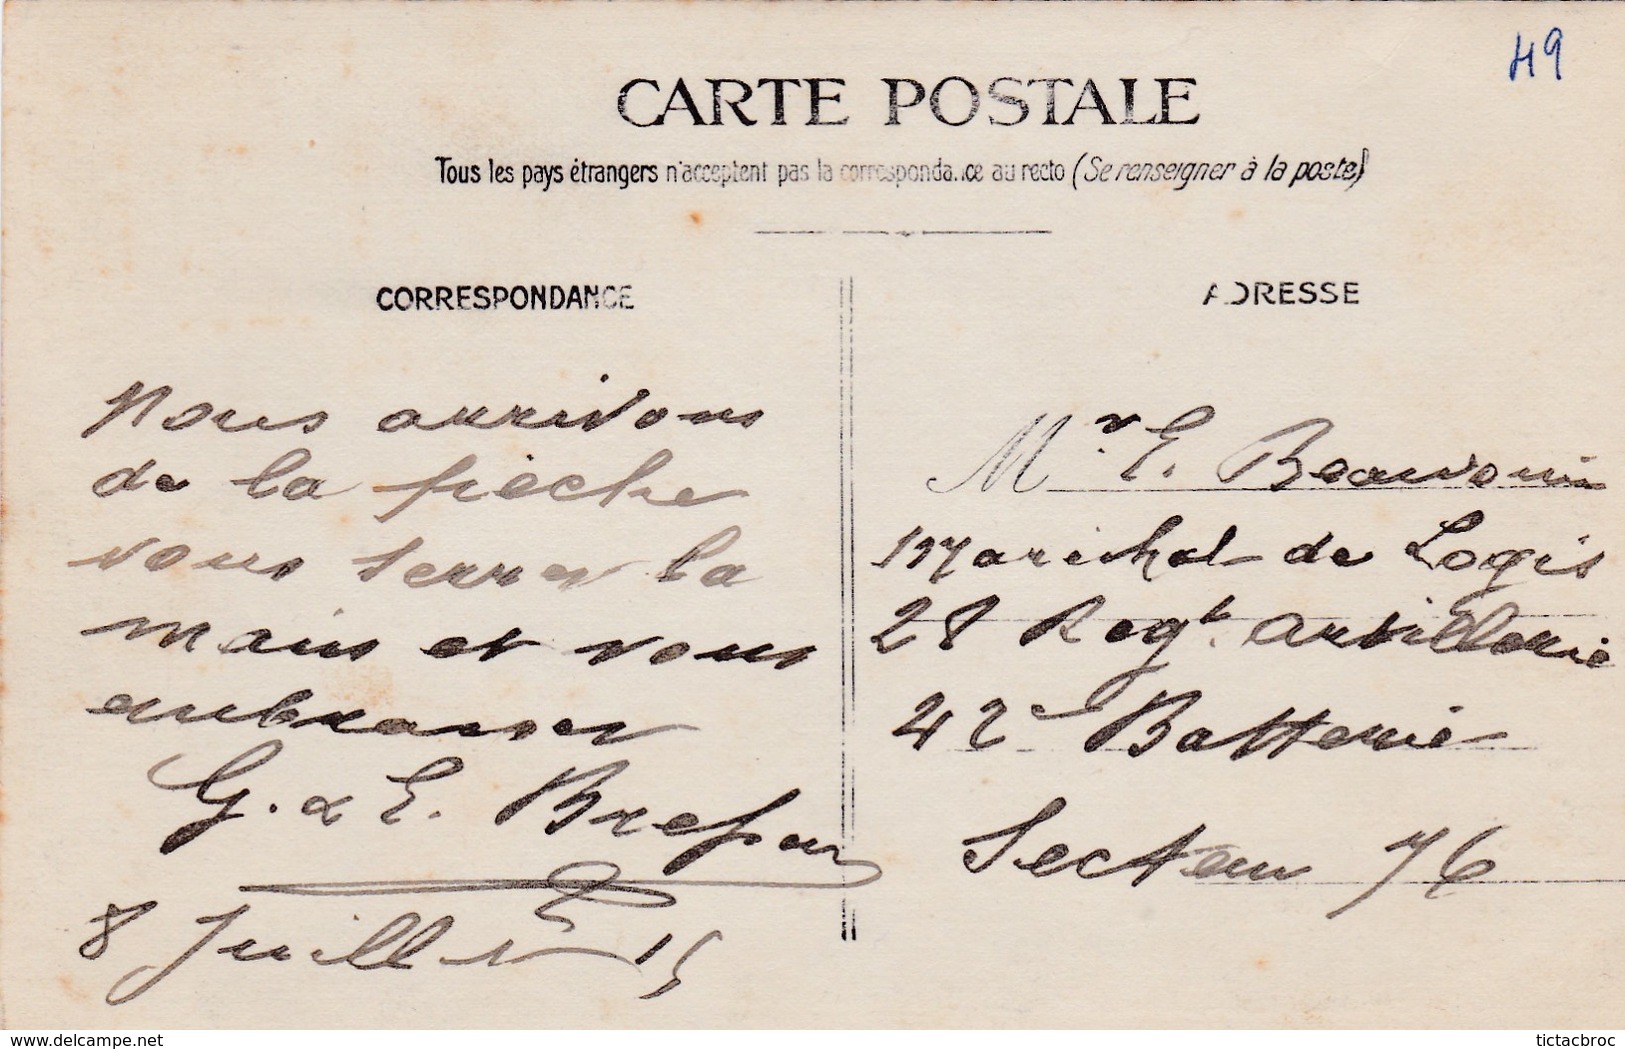 49
CARTE POSTALE
Tous les pays étrangers n'acceptent pas la correspondance au recto (Se renseigner à la poste)
CORRESPONDANCE
ADRESSE
Nous arrivons
de la pièche
vous serrer la
main et vous
embrasser
G. & E.
8 Juillet 15
Mr. E. Beauvouin
Marichal de Logis
28 Regt. Artillerie
42e Batterie
Secteur 76
delcampe.net
tictacbroc